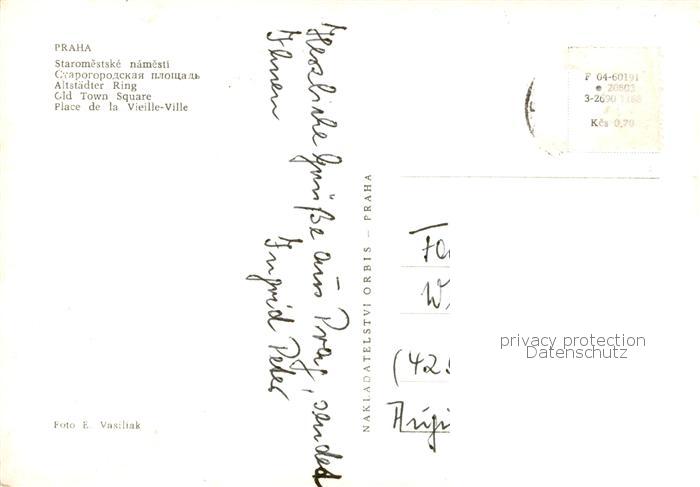 PRAHA
Staroměstské náměstí
Старогородская площадь
Altstädter Ring
Old Town Square
Place de la Vieille-Ville
Foto E. Vasiliak
Herzliche Grüße aus Prag, sendet
Ihnen
Ingrid Peter
NAKLADATELSTVÍ ORBIS — PRAHA
F 04-60191
20803
3-2690
Kčs 0,70
(42
privacy protection
Datenschutz